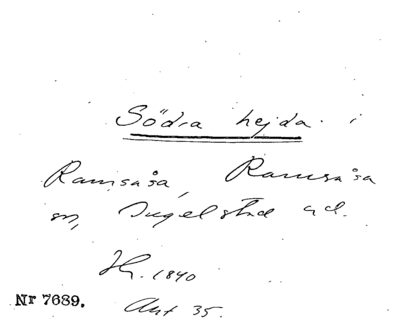 Södra hejda. i
Ramsåsa, Ramsåsa
sn, Ingelstad hd.
Jh. 1840
Nr 7689.
Akt 35.